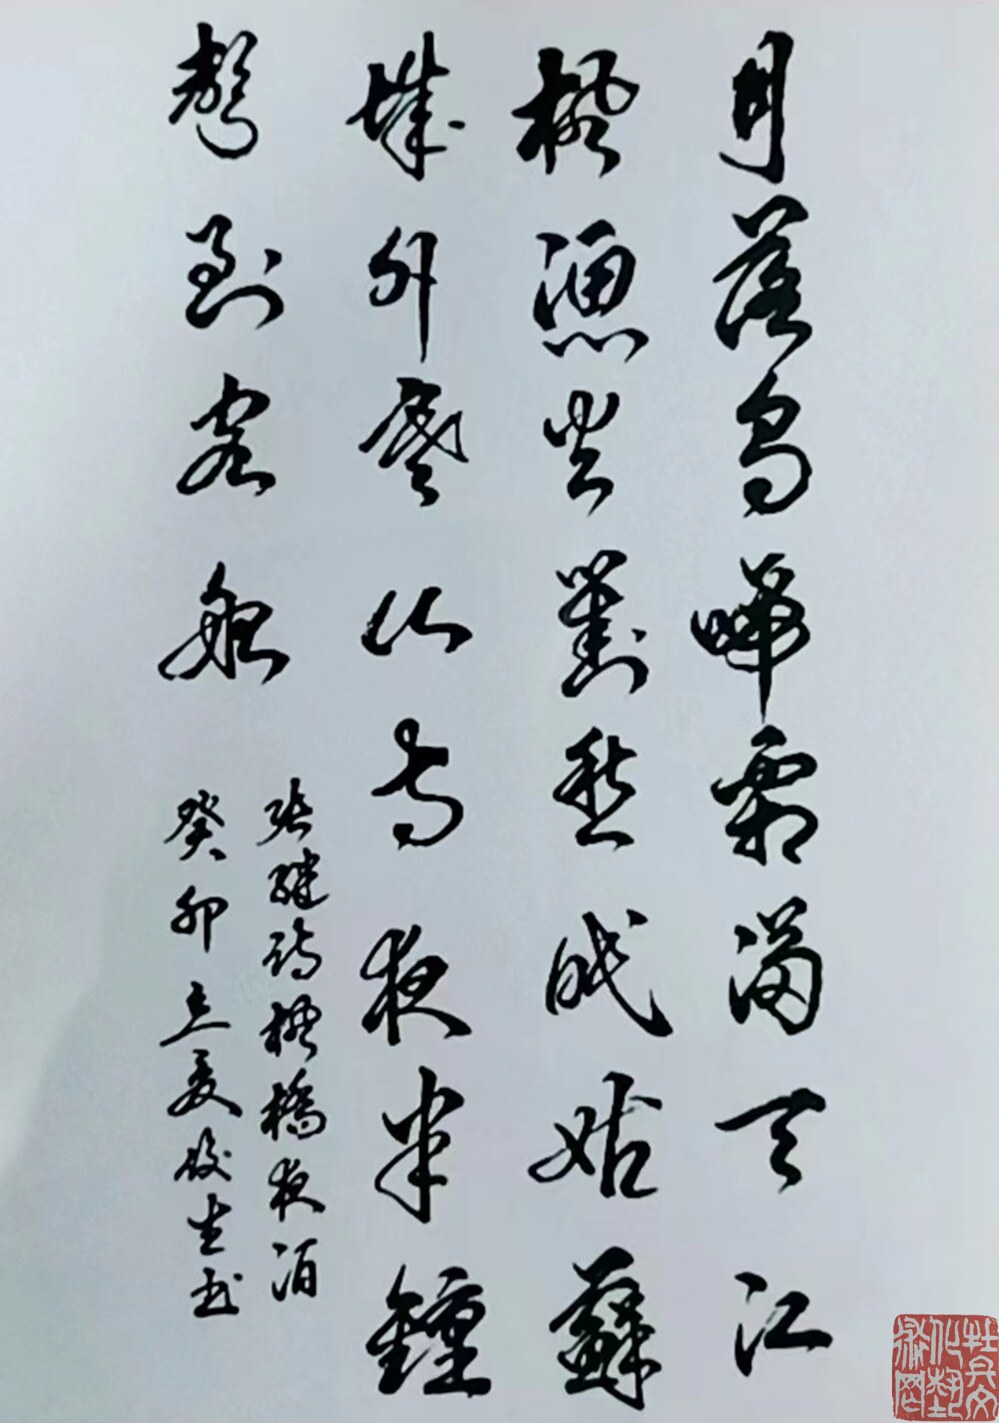 月落烏啼霜滿天江
楓漁火對愁眠姑蘇
城外寒山寺夜半鍾
聲到客船
張繼詩楓橋夜泊
癸卯立夏
生书